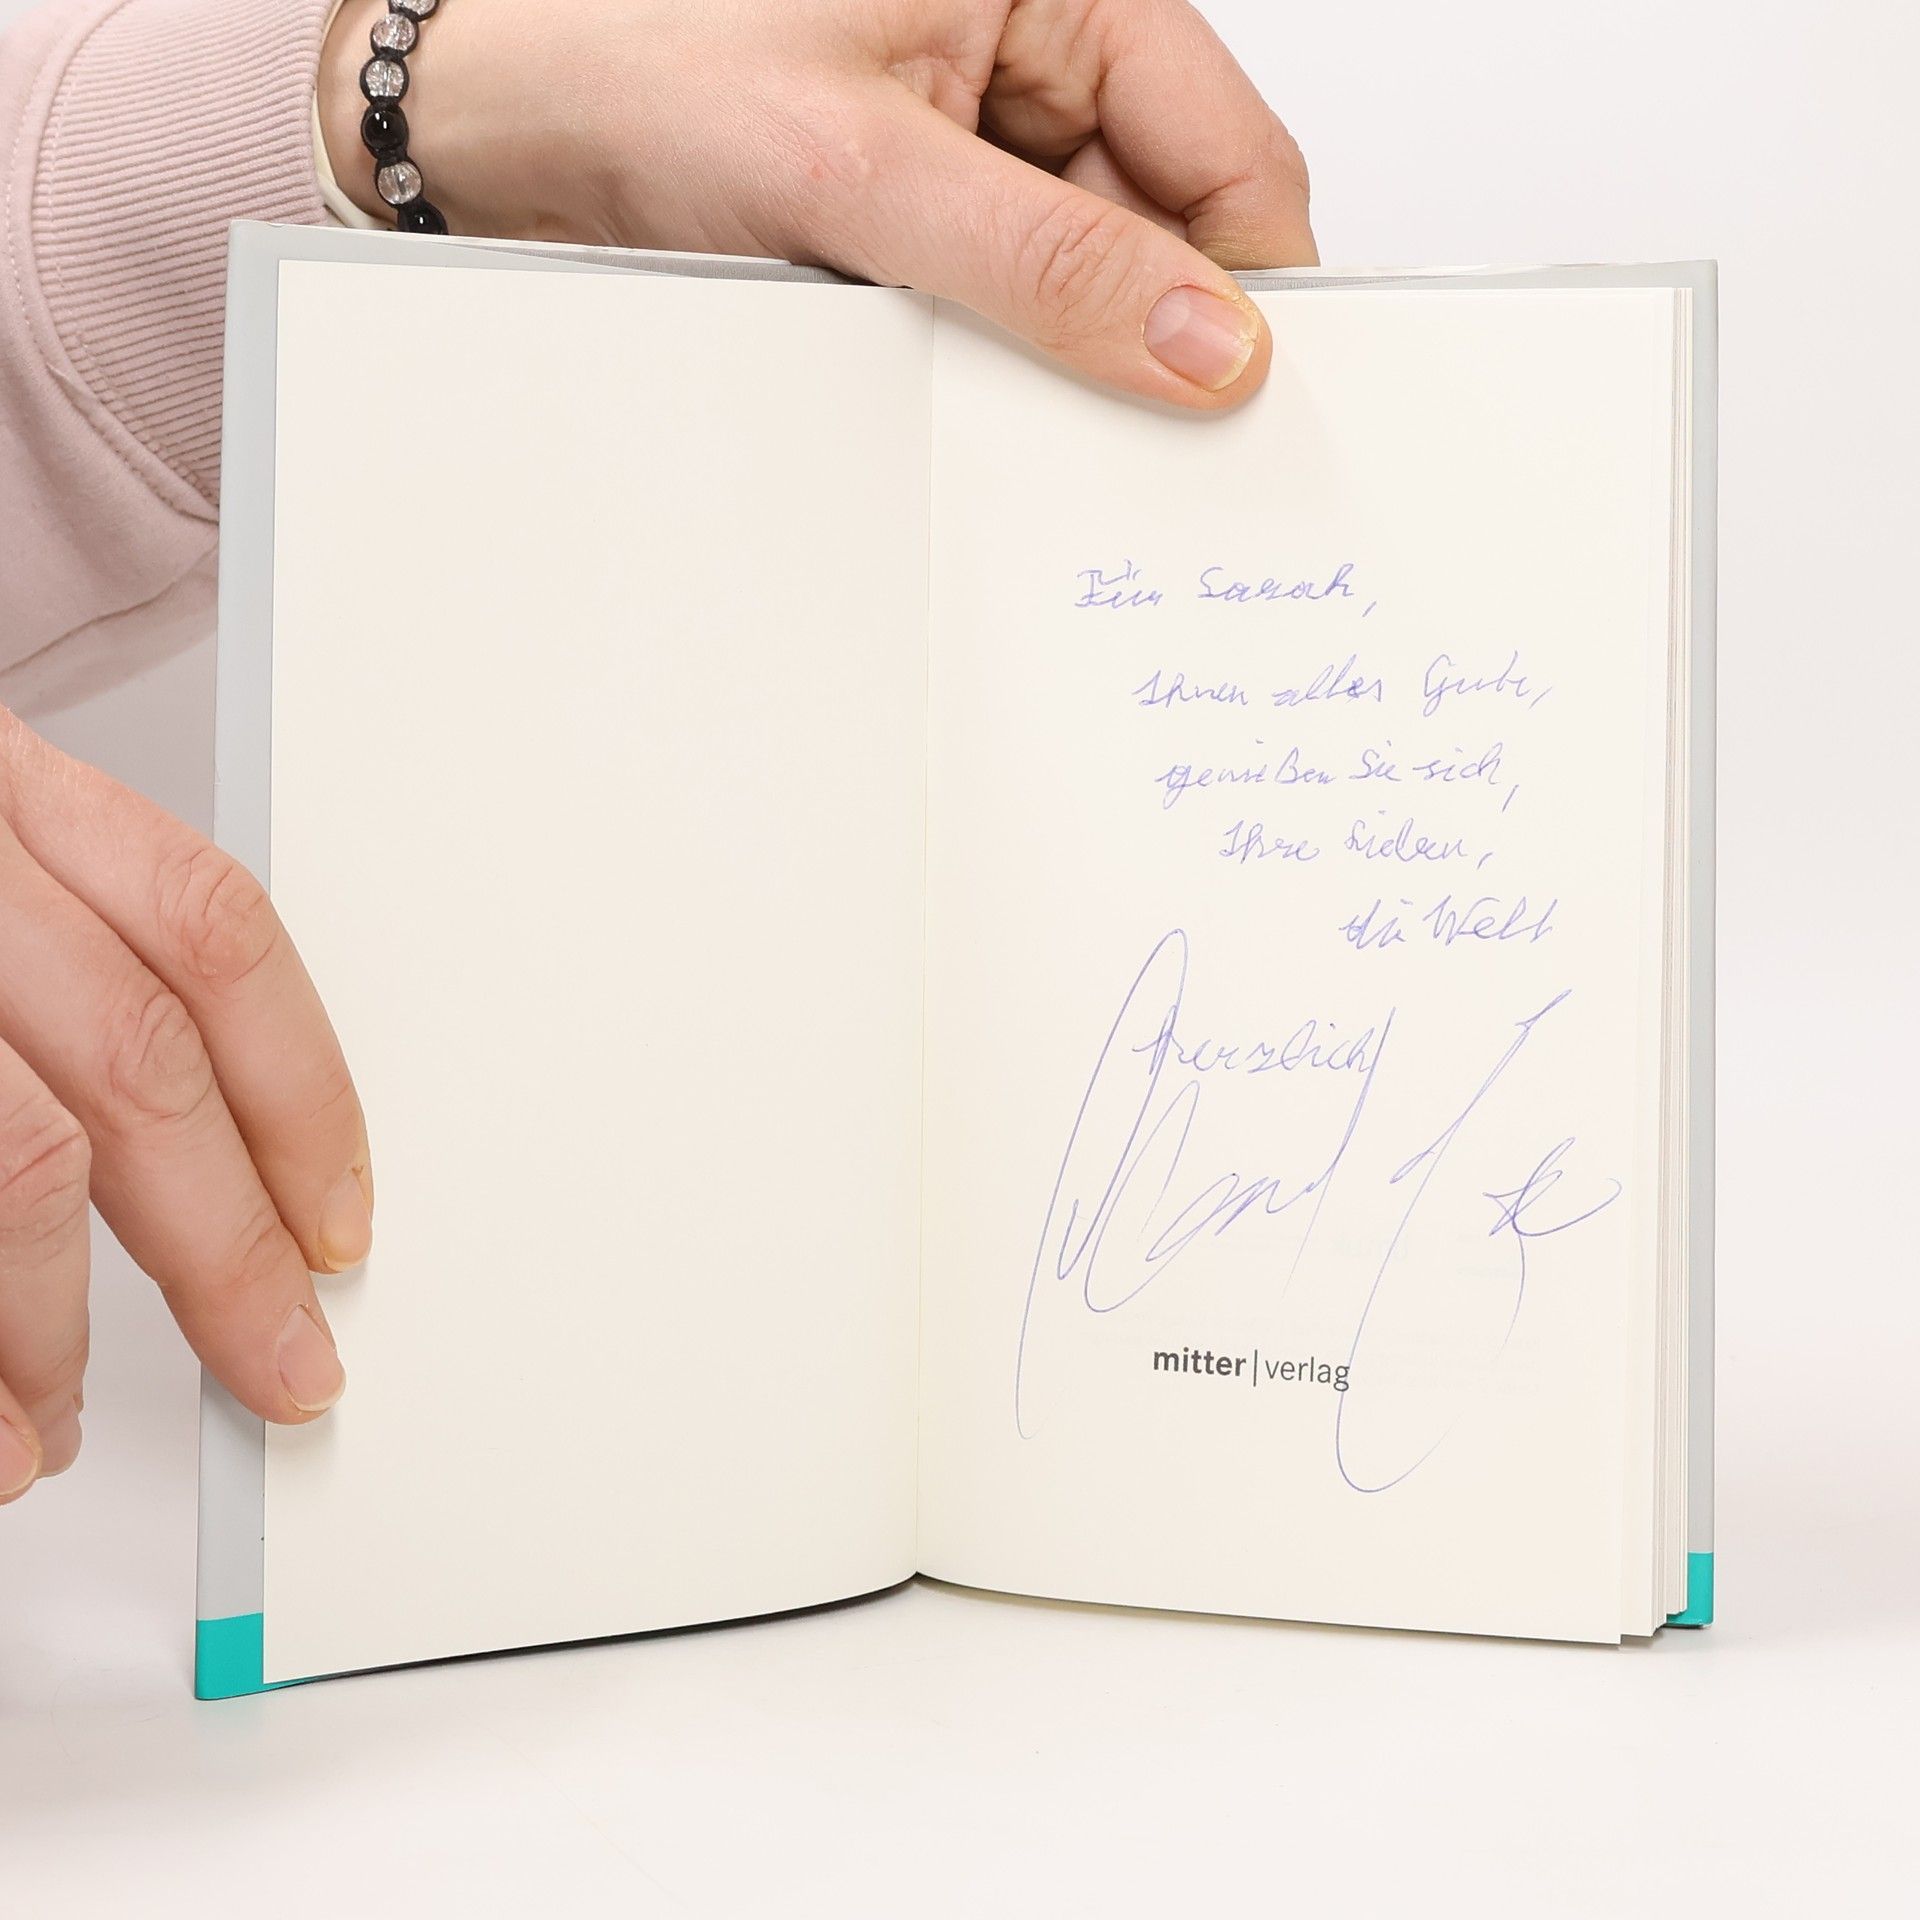 Für Sarah,
Ihnen alles Gute,
genießen Sie sich,
Ihre Lieben,
die Welt
herzlich
mitter|verlag